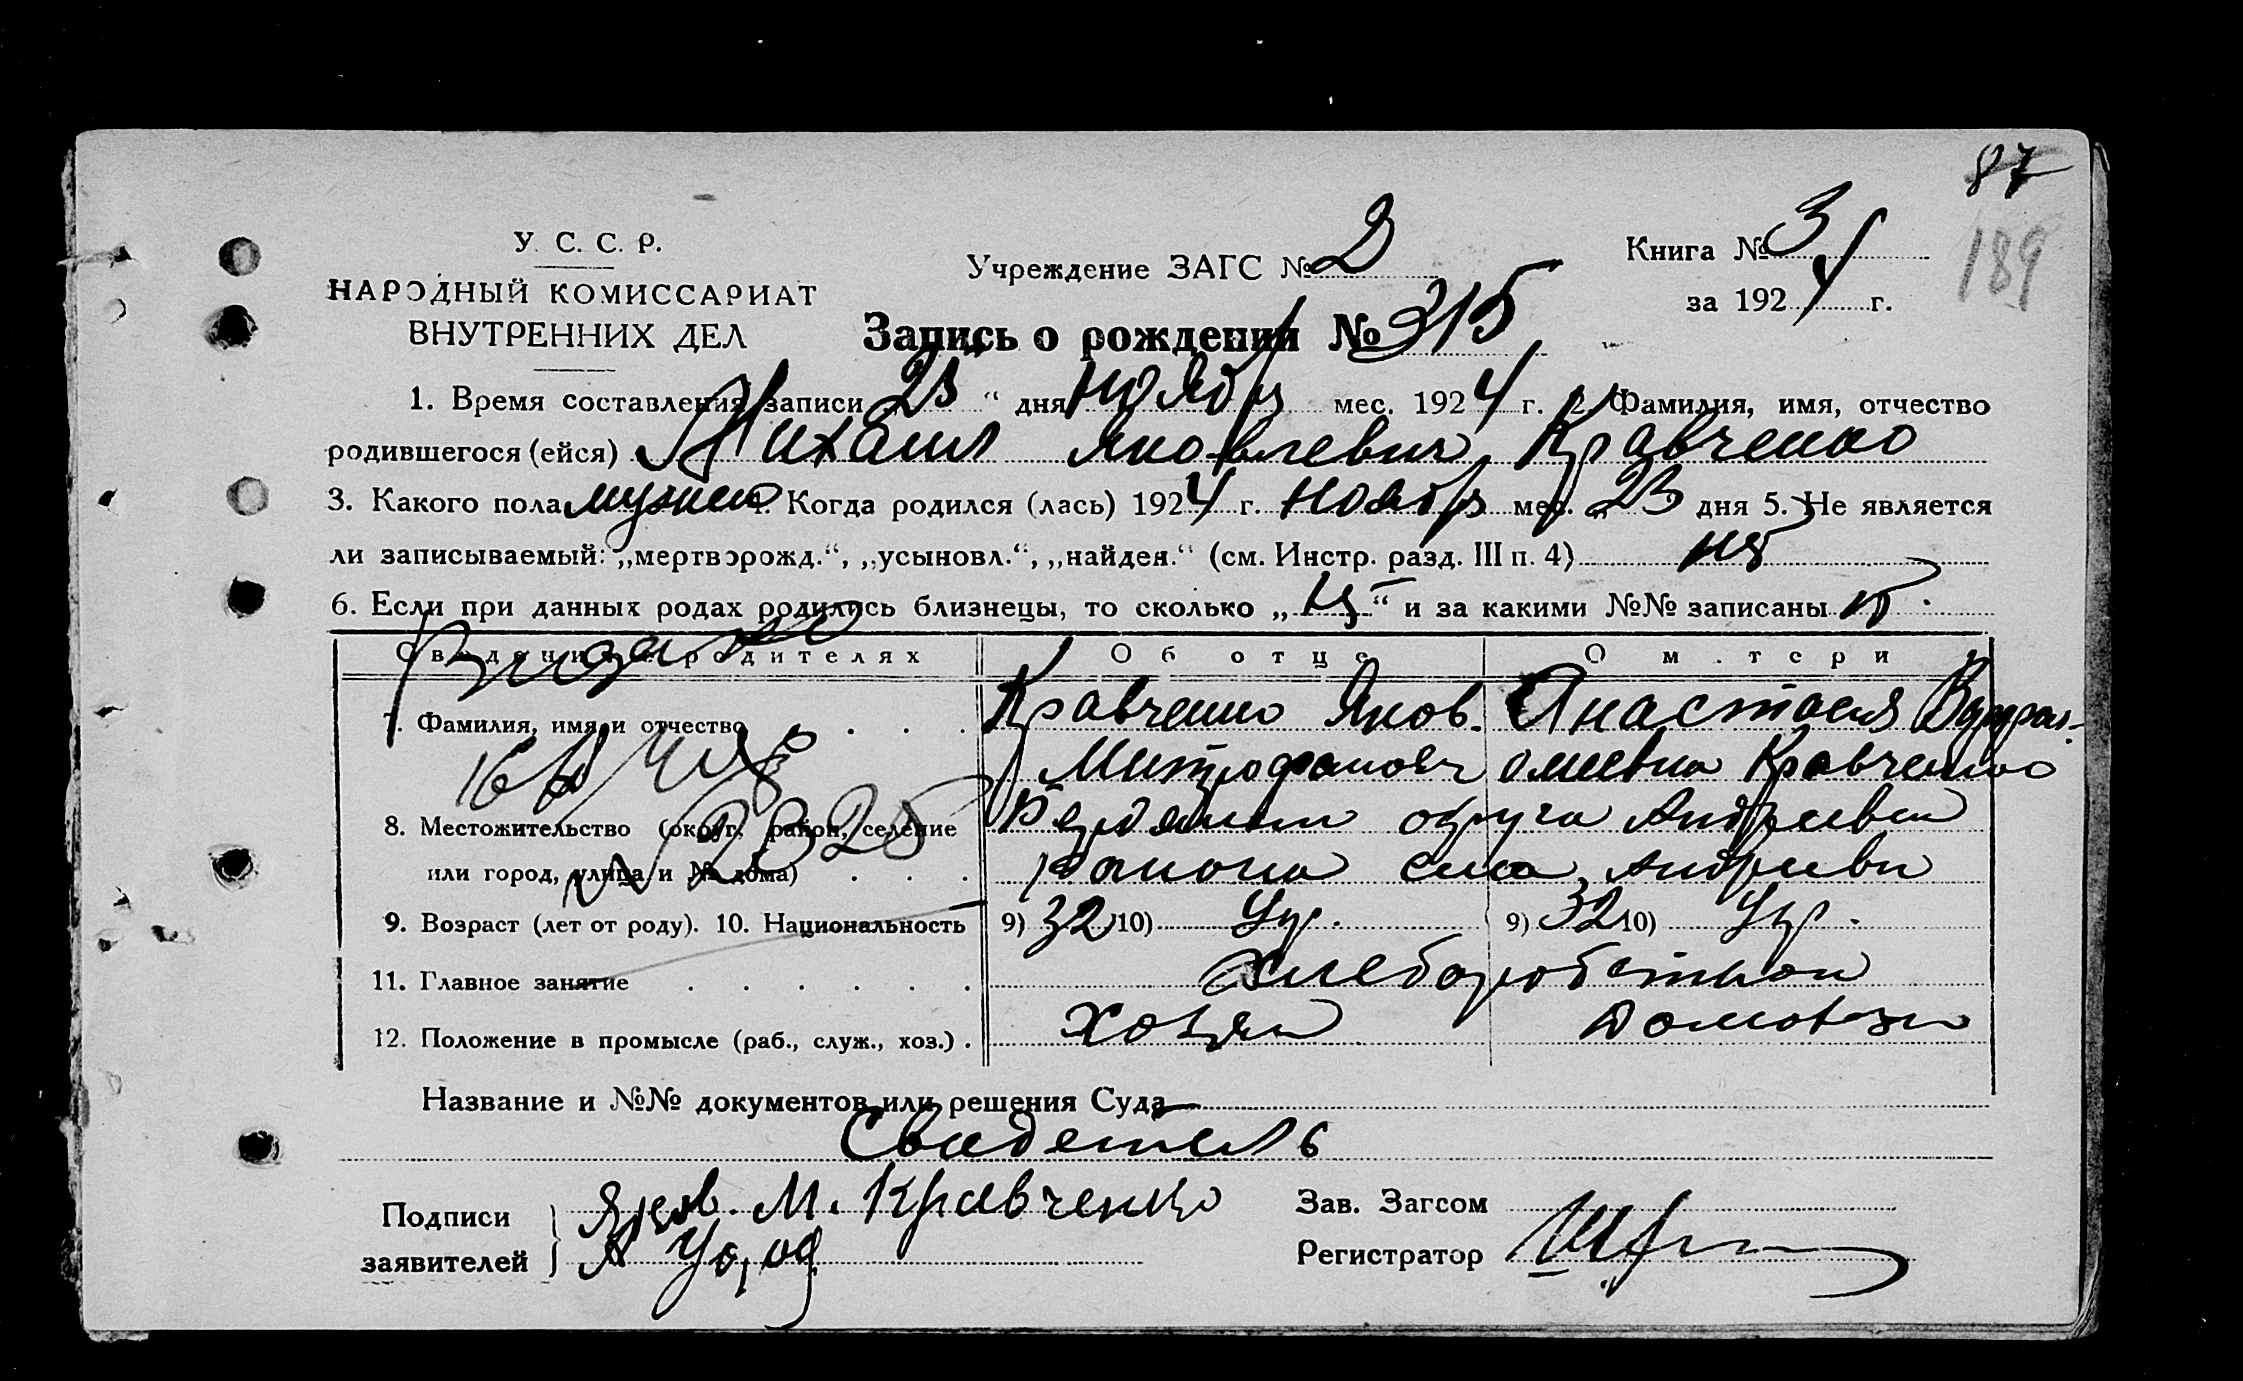 87
189
У. С. С. Р.
НАРОДНЫЙ КОМИССАРИАТ
ВНУТРЕННИХ ДЕЛ
Учреждение ЗАГС № 2
Книга № 3
за 1924 г.
Запись о рождении № 315
1. Время составления записи 25 “ дня Ноябр мес. 1924 г. 2. Фамилия, имя, отчество
родившегося (ейся) Михаил Яковлевич Кравченко
3. Какого пола мужск 4. Когда родился (лась) 1924 г. Ноябр мес. „ 23 дня 5. Не является
ли записываемый: „мертворожд.“, „усыновл.“, „найден.“ (см. Инстр. разд. III п. 4) нет
6. Если при данных родах родились близнецы, то сколько „ “ и за какими №№ записаны
Сведения о родителях Об отце О матери
7. Фамилия, имя и отчество . . . Кравченко Яков. Анастасия
Митрофанов Кравченко
8. Местожительство (округ, район, селение округа Андреевск
или город, улица и № дома) . . . района села Андреевки
9. Возраст (лет от роду). 10. Национальность 9) 32 10) Укр. 9) 32 10) Укр.
11. Главное занятие . . . . . . Хлеборобством
12. Положение в промысле (раб., служ., хоз.) . Хозяин Домохоз
Название и №№ документов или решения Суда
Свидетель
Подписи заявителей } Яков. М. Кравченко
Зав. Загсом
Регистратор